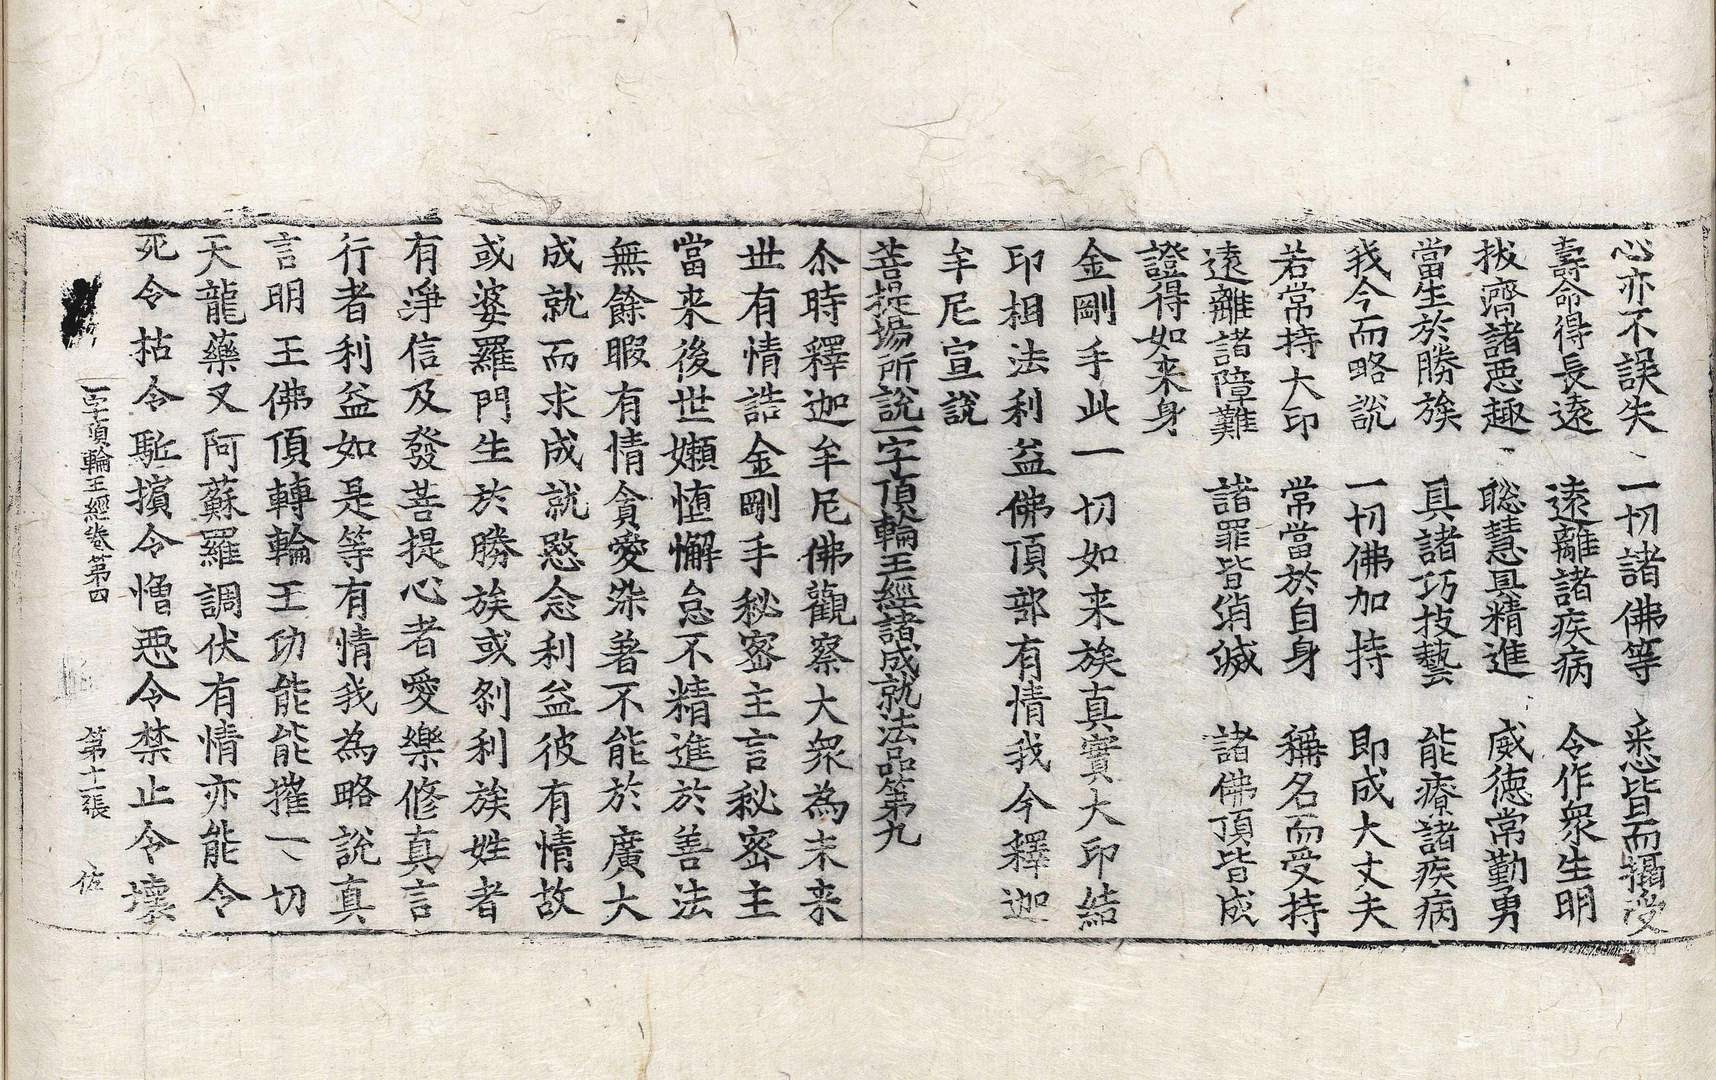 心亦不誤失 一切諸佛等 悉皆而攝受
壽命得長遠 遠離諸疾病 令作衆生明
拔濟諸惡趣 聡慧具精進 威德常勤勇
當生於勝族 具諸巧技藝 能療諸疾病
我今而略說 一切佛加持 即成大丈夫
若常持大印 常當於自身 稱名而受持
遠離諸障難 諸罪皆消滅 諸佛頂皆成
證得如来身
金剛手此一切如来族真實大印結
印相法利益佛頂部有情我今釋迦
牟尼宣說
菩提場所說一字頂輪王經諸成就法品第九
尒時釋迦牟尼佛觀察大衆為未来
世有情誥金剛手秘密主言秘密主
當来後世嬾堕懈怠不精進於善法
無餘暇有情貪愛染著不能於廣大
成就而求成就愍念利益彼有情故
或婆羅門生於勝族或刹利族姓者
有淨信及發菩提心者愛樂修真言
行者利益如是等有情我為略說真
言明王佛頂轉輪王功能能摧一切
天龍藥叉阿蘇羅調伏有情亦能令
死令枯令駈擯令憎惡令禁止令壞
一字頂輪王經卷第四 第十一張 佐